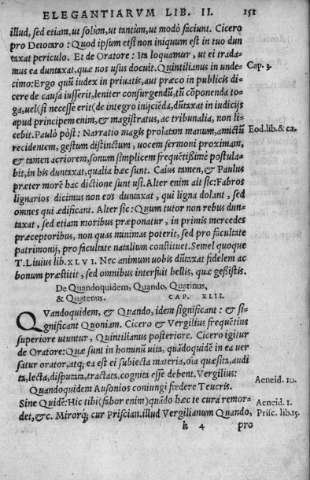 ELEGANTIARVM LIB. II. 152
illud, sed etiam, ut solùm, ut tantùm, ut modò faciunt. Cicero
pro Deiotaro: Quod ipsum etsi non iniquum est in tuo dun
taxat periculo. Et de Oratore: Im loquamur, ut ei trada-
mus ea duntaxat, quæ nos usus docuit. Quintilianus in unde-
Cap. 3.
cimo: Ergo quū iudex in priuatis, aut præco in publicis di-
cere de causa iusserit, leniter consurgendū, tū cōponenda to-
ga, uel si necesse erit (de integro inijcienda, dūtaxat in iudicijs
apud principem enim, & magistratus, ac tribunalia, non li-
cebit. Paulò pòst: Narratio magis prolatam manum, amictū
Eod. lib. & ca.
recidentem, gestum distinctum, uocem sermoni proximam,
& tamen acriorem, sonum simplicem frequētißimè postula-
bit, in his duntaxat, qualia hæc sunt. Caius tamen, & Paulus
præter morē hac dictione sunt usi. Alter enim ait sic: Fabros
lignarios dicimus non eos duntaxat, qui ligna dolant, sed
omnes qui ædificant. Alter sic: Quum tutor non rebus dun-
taxat, sed etiam moribus præponatur, in primis mercedes
præceptoribus, non quas minimas poterit, sed pro facultate
patrimonij, pro facultate natalium constituet. Semel quoque
T. Liuius lib. XLVI. Nec animum uobis dūtaxat fidelem ac
bonum præstitit, sed omnibus interfuit bellis, quæ geßistis.
De Quandoquidem, Quando, Quatinus,
& Quatenus. CAP. XLII.
QVandoquidem, & Quando, idem significant: & si-
gnificant Quoniam. Cicero & Vergilius frequētius
superiore utuntur, Quintilianus posteriore. Cicero igitur
de Oratore: Quæ sunt in hominū uita, quādoquidē in ea uer
satur orator, atq; ea est ei subiecta materia, oīa quæsita, audi
ta, lecta, disputata, tractata, cognita esse debent. Vergilius:
Quandoquidem Ausonios coniungi fœdere Teucris.
Aeneid. 10.
Sine Quidē: Hic tibi (fabor enim) quādo hæc te cura remor-
Aeneid. 1.
det, &c. Mirorq; cur Priscian. illud Vergilianum Quando,
Prisc. lib. 15.
h 4 pro